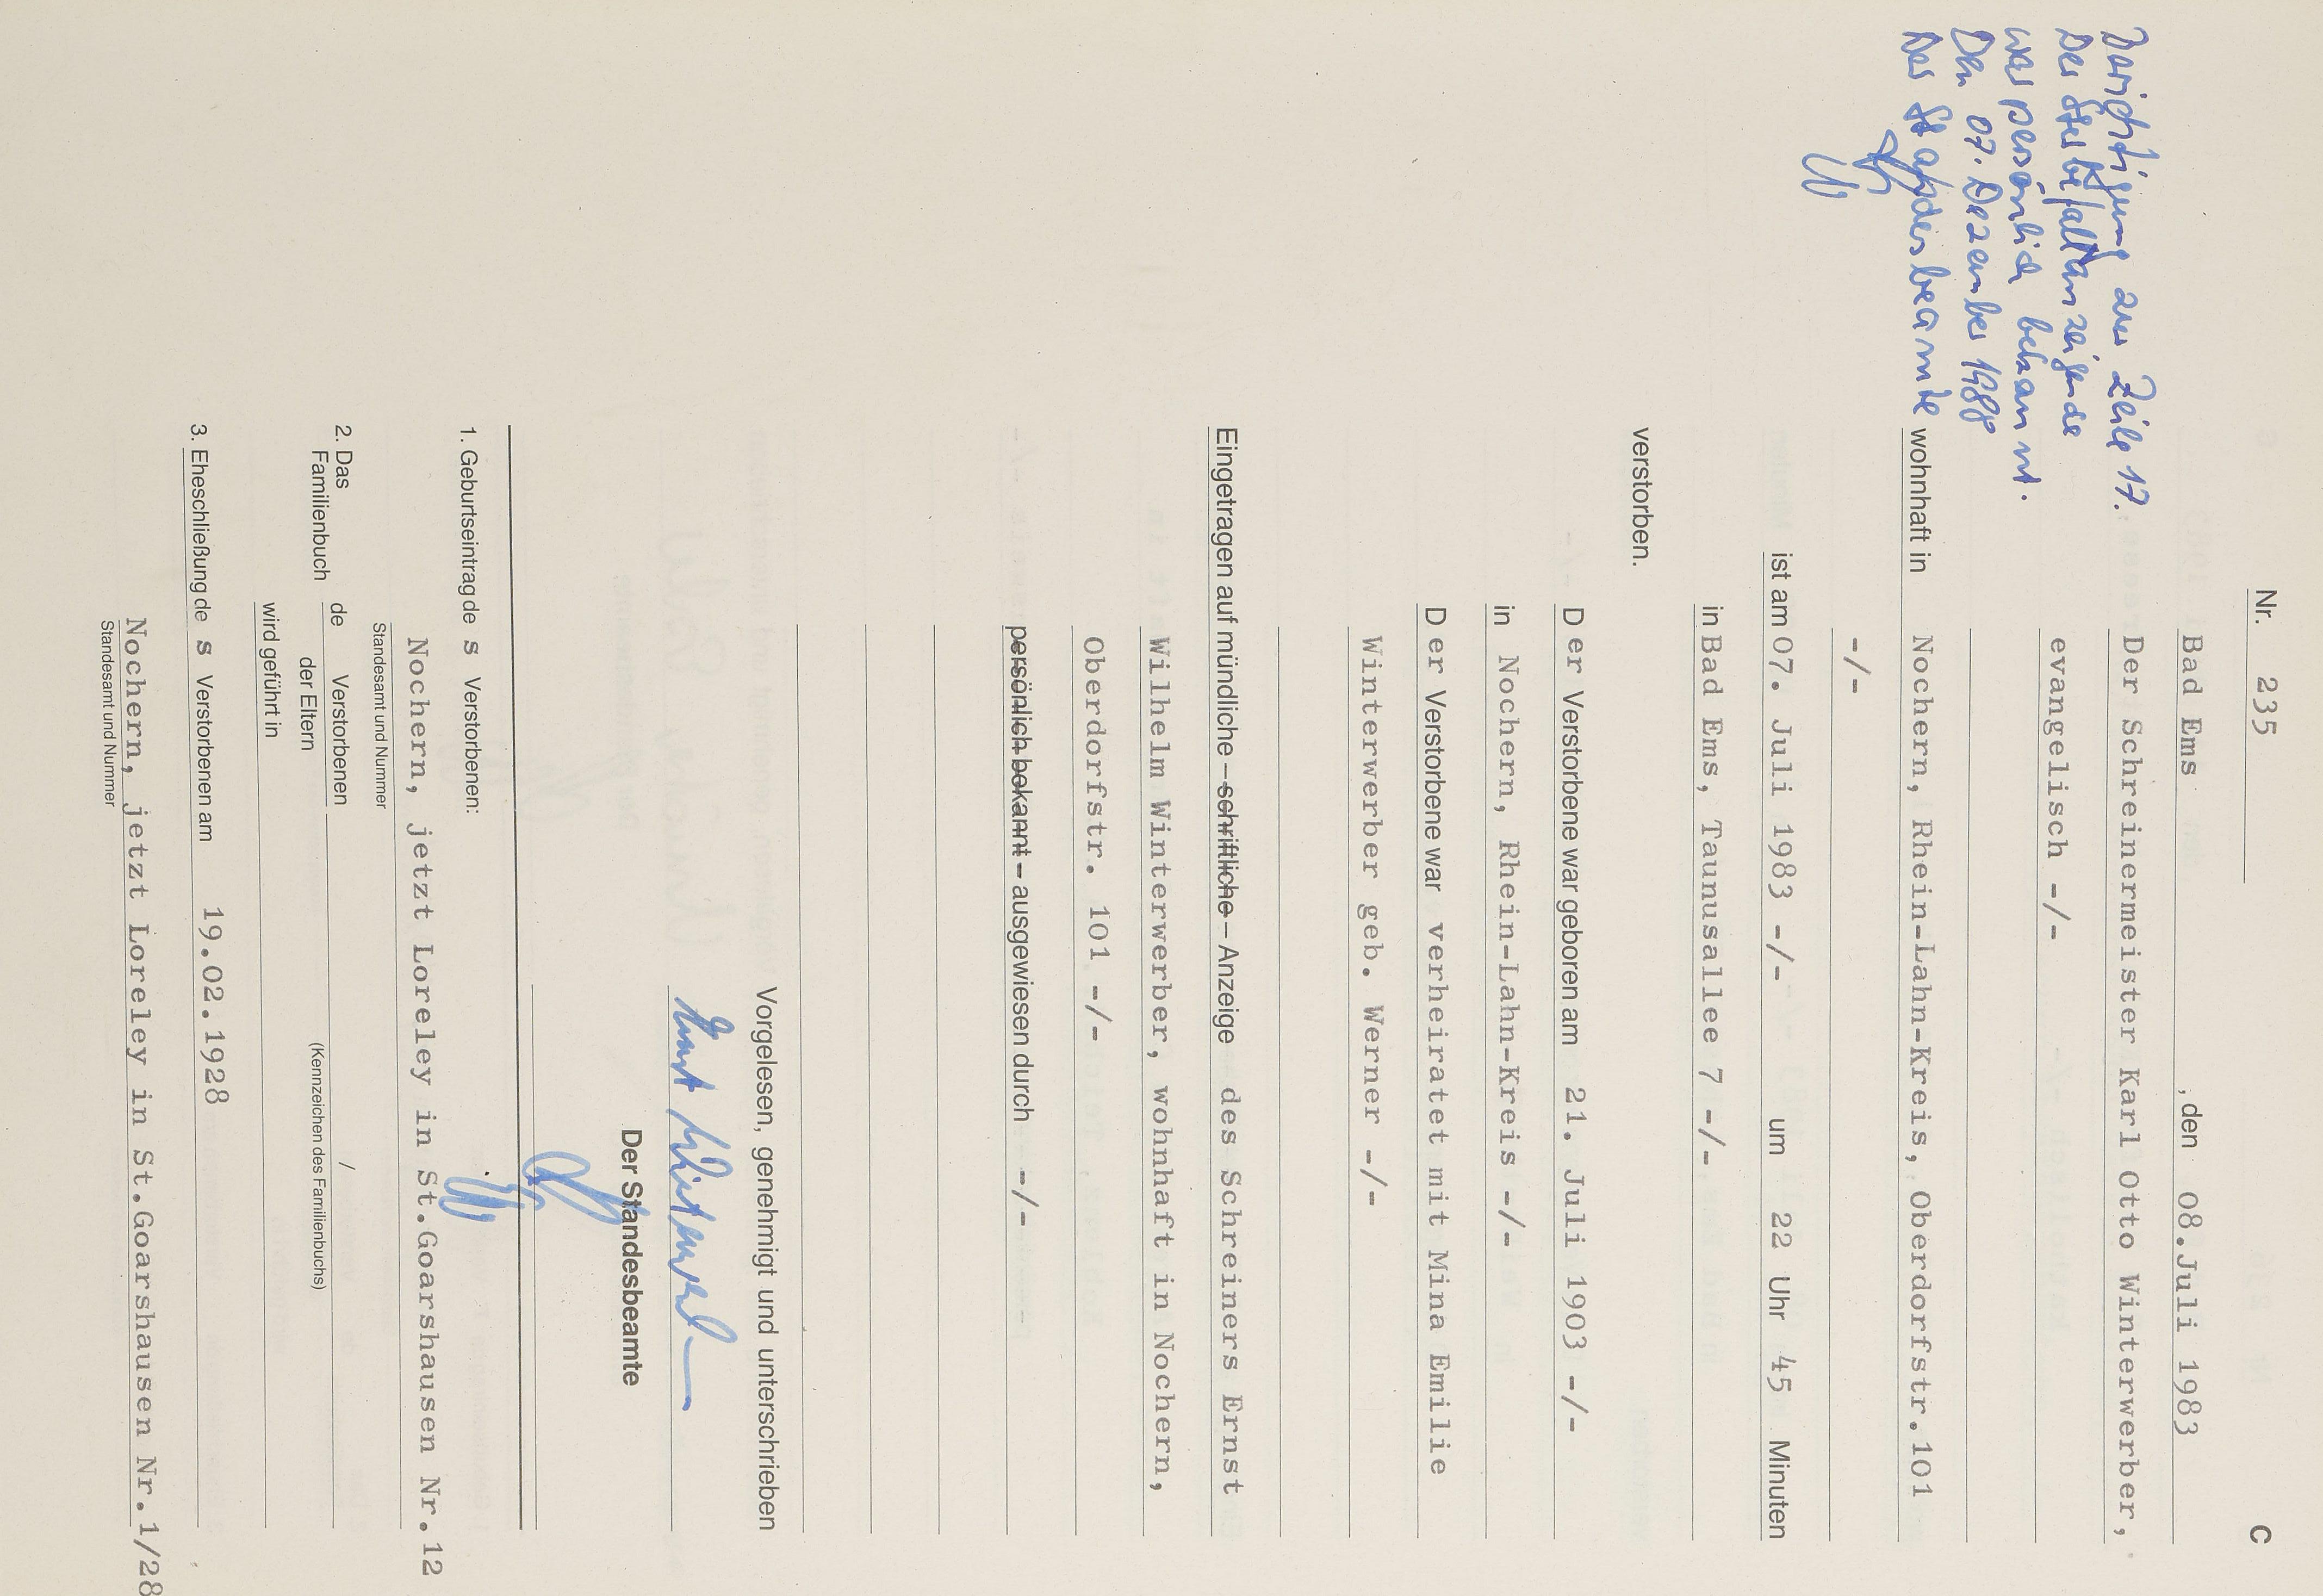 Nr. 235
C
Bad Ems , den 08.Juli 1983
Der Schreinermeister Karl Otto Winterwerber,
evangelisch -/-
wohnhaft in Nochern, Rhein-Lahn-Kreis, Oberdorfstr.101
-/-
ist am 07. Juli 1983 -/- um 22 Uhr 45 Minuten
in Bad Ems, Taunusallee 7 -/-
verstorben.
Der Verstorbene war geboren am 21. Juli 1903 -/-
in Nochern, Rhein-Lahn-Kreis -/-
Der Verstorbene war verheiratet mit Mina Emilie
Winterwerber geb. Werner -/-
Eingetragen auf mündliche – schriftliche – Anzeige des Schreiners Ernst
Wilhelm Winterwerber, wohnhaft in Nochern,
Oberdorfstr. 101 -/-
persönlich bekannt – ausgewiesen durch -/-
Vorgelesen, genehmigt und unterschrieben
Der Standesbeamte
1. Geburtseintrag des Verstorbenen:
Nochern, jetzt Loreley in St.Goarshausen Nr.12
Standesamt und Nummer
2. Das Familienbuch de Verstorbenen /
der Eltern (Kennzeichen des Familienbuchs)
wird geführt in
3. Eheschließung des Verstorbenen am 19.02.1928
Nochern, jetzt Loreley in St.Goarshausen Nr.1/28
Standesamt und Nummer
Berichtigung zu Zeile 17.
Der Sterbefallanzeigende
war persönlich bekannt.
Den 07. Dezember 1988
Der Standesbeamte